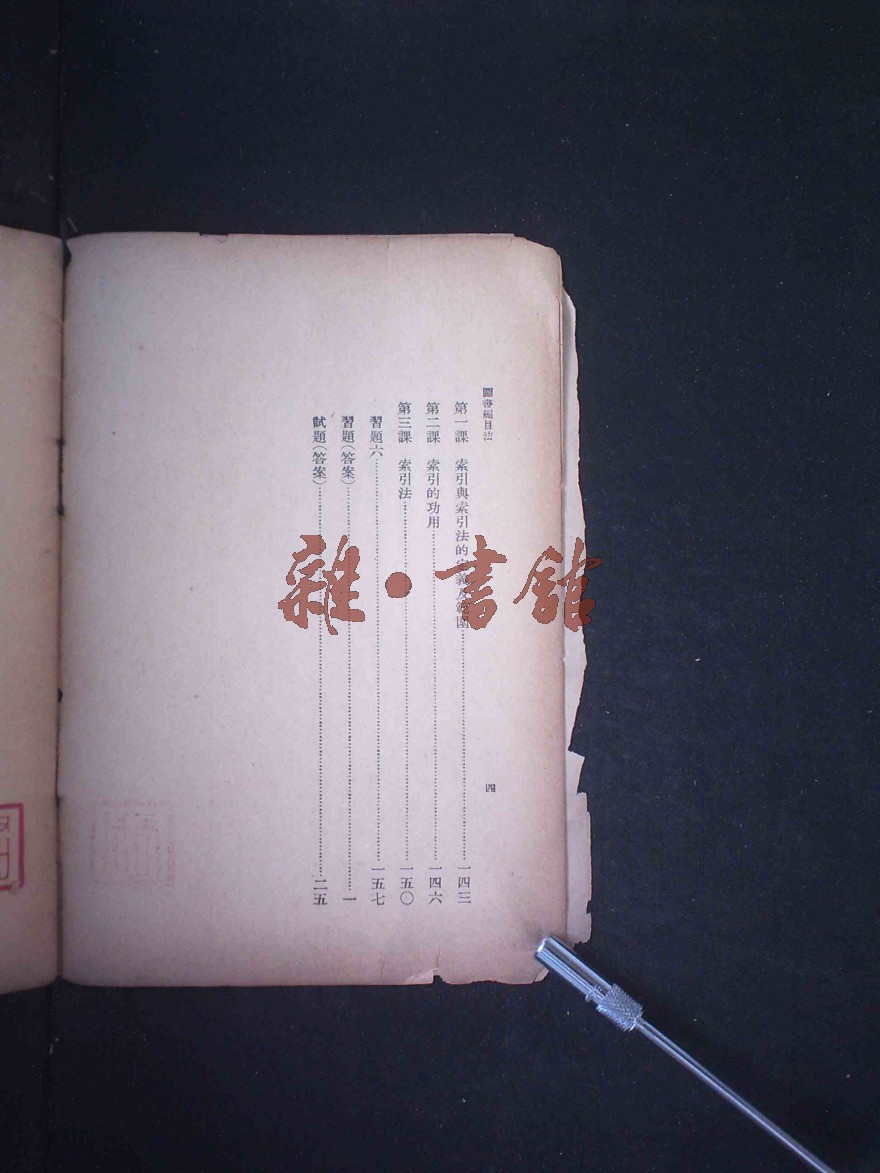 圖書編目法
第一課　索引與索引法的定義及範圍……一四三
第二課　索引的功用……一四六
第三課　索引法……一五〇
習題六……一五七
習題（答案）……一
試題（答案）……二五
四
雜·書館